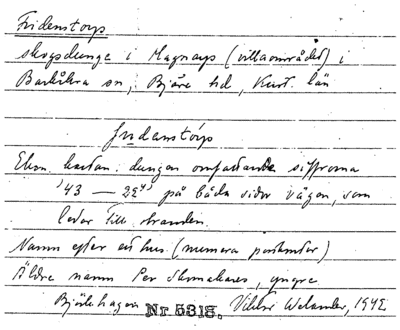 Fridenstorp
skogsdunge i Magnarp (villaområdet) i
Barkåkra sn, Bjäre hd, Krist. län
Ekon. kartan: dungen omfattande siffrorna
'43 — 22⁴' på båda sidor vägen, som
leder till stranden.
Namn efter ett hus (numera
Äldre namn Per Skomakares, yngre
Björkhagen Nr. 5318. Viktor Welander, 1942